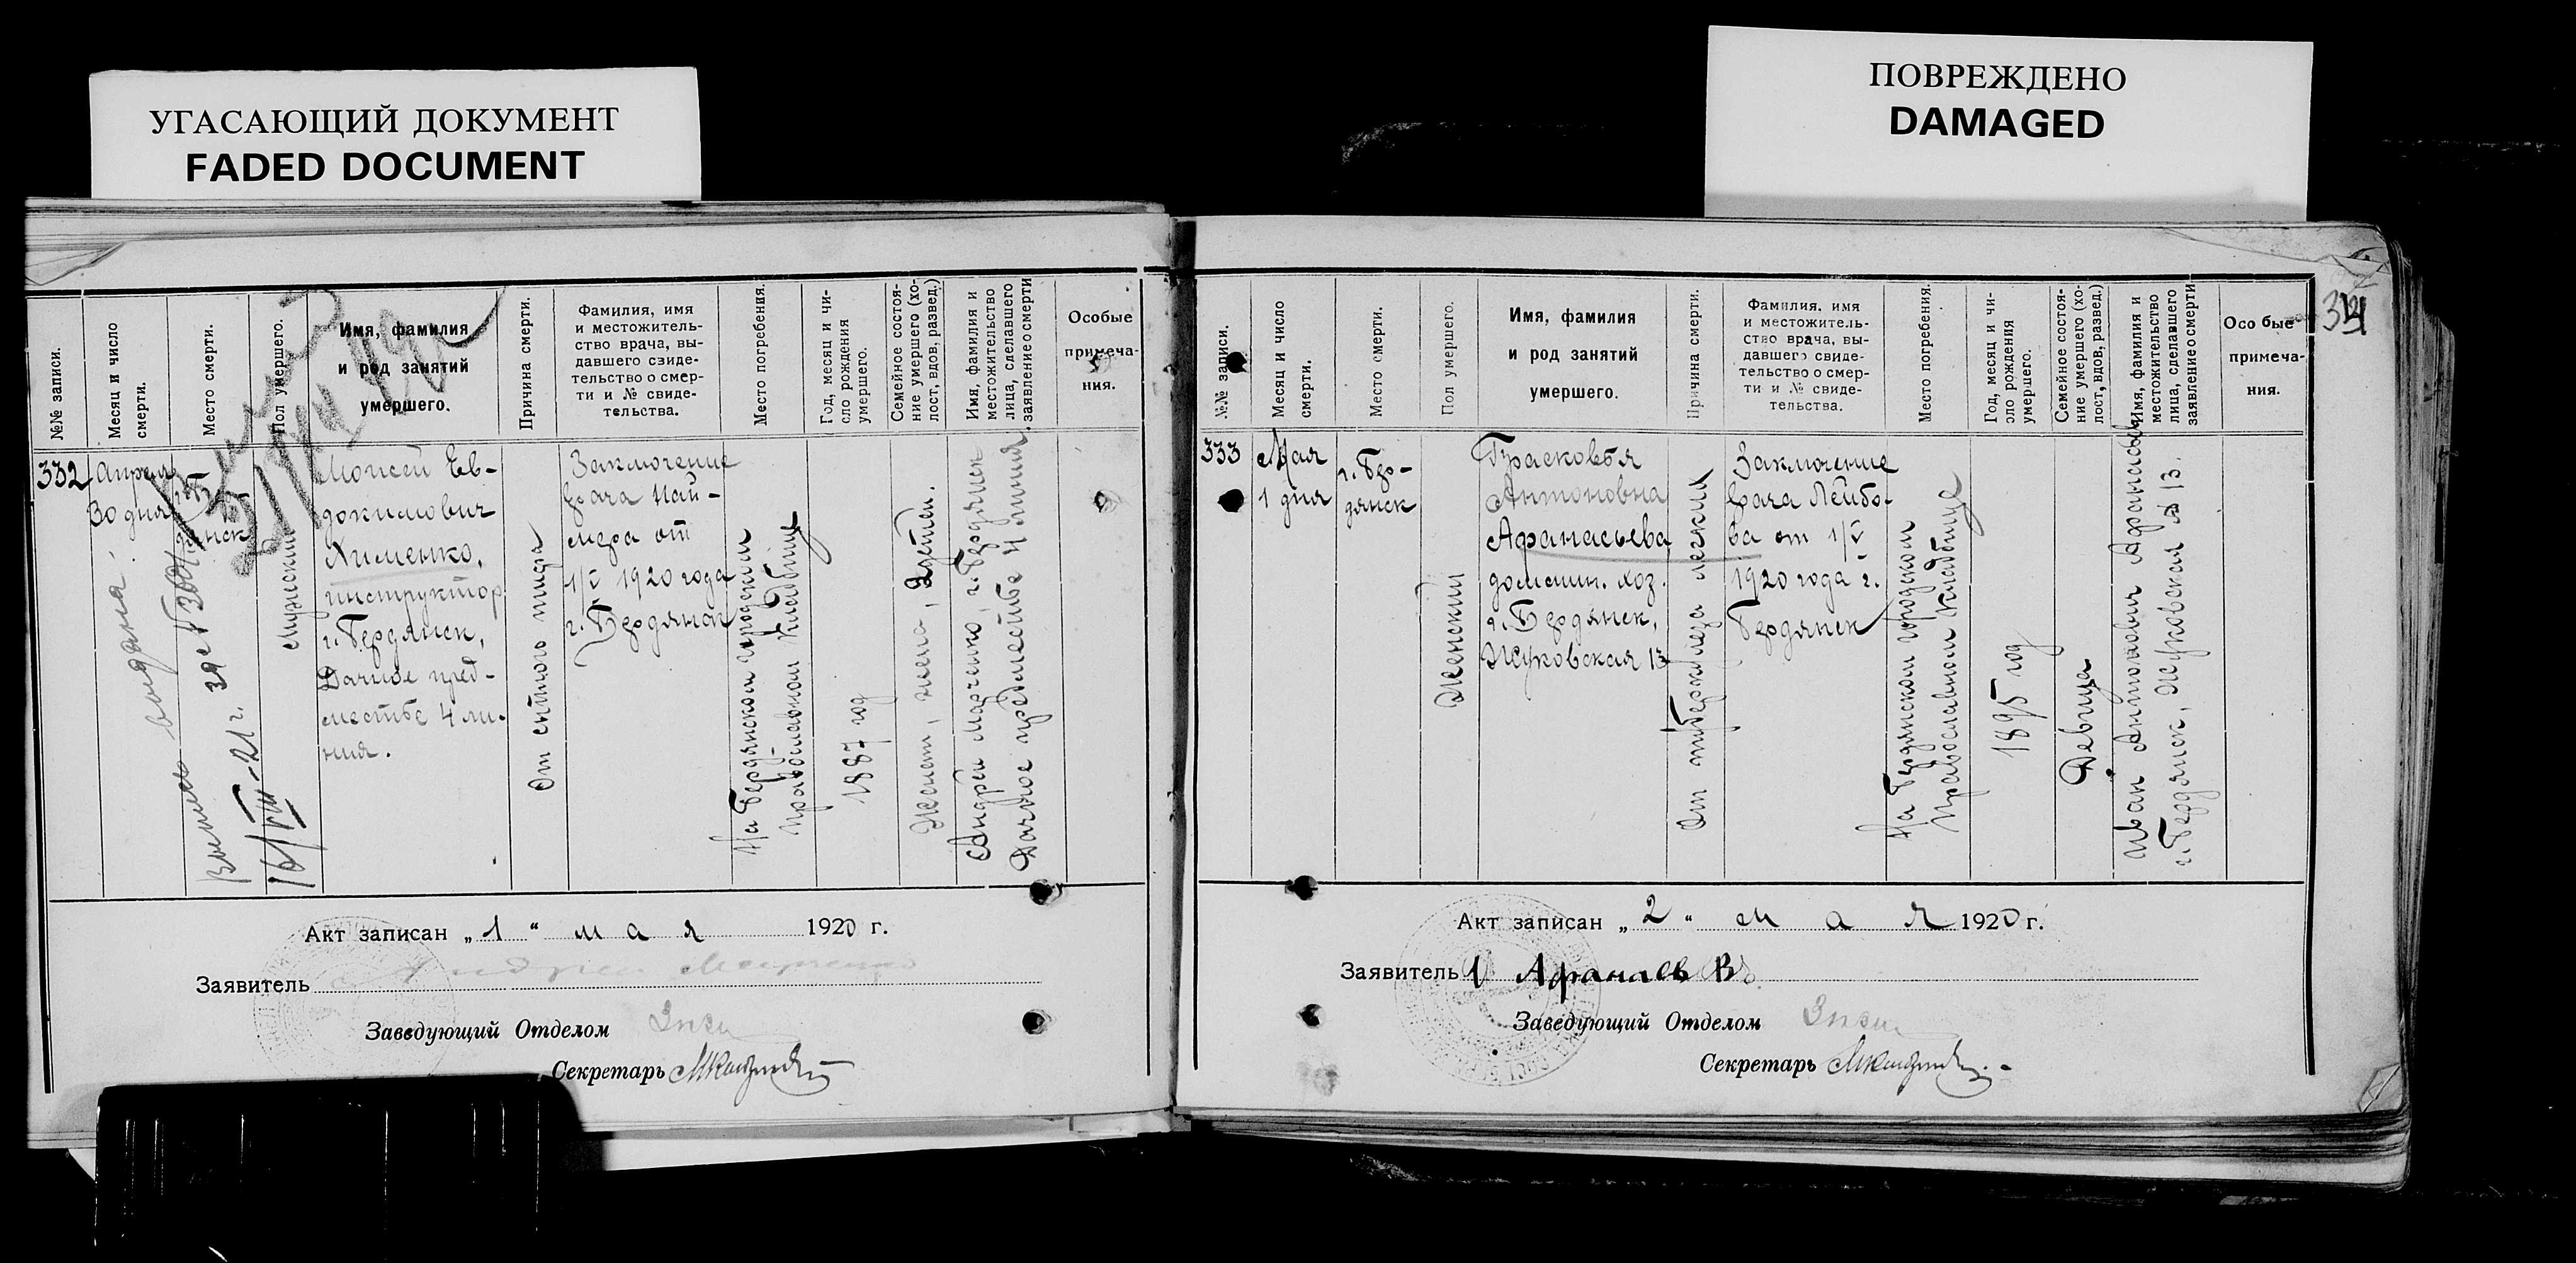 УГАСАЮЩИЙ ДОКУМЕНТ
FADED DOCUMENT
ПОВРЕЖДЕНО
DAMAGED
№№ записи.
Месяц и число
смерти.
Место смерти.
Пол умершего.
Имя, фамилия
и род занятий
умершего.
Причина смерти.
Фамилия, имя
и местожитель-
ство врача, вы-
давшего свиде-
тельство о смер-
ти и № свиде-
тельства.
Место погребения.
Год, месяц и чи-
сло рождения
умершего.
Семейное состоя-
ние умершего (хо-
лост, вдов, развед.)
Имя, фамилия и
местожительство
лица, сделавшего
заявление о смерти.
Особые
примеча-
ния.
332
Апреля
30 дня
дянск
Мужеский
Моисей Ев-
докимович
Хименко,
инструктор
г. Бердянск,
Дачное пред-
местье 4 ли-
ния.
От сыпного тифа
Заключение
врача Най-
мера от
1/V 1920 года
г. Бердянск
На Бердянском городском
Православном Кладбище
1887 год
Женат, жена, 2 детей.
Андрей Марченко, г. Бердянск
Дачное предместье 4 линия
выдана
16/VIII-21 г.
Акт записан „1“ мая 1920 г.
Заявитель Андрей
Заведующий Отделом
Секретарь
№№ записи.
Месяц и число
смерти.
Место смерти.
Пол умершего.
Имя, фамилия
и род занятий
умершего.
Причина смерти.
Фамилия, имя
и местожитель-
ство врача, вы-
давшего свиде-
тельство о смер-
ти и № свиде-
тельства.
Место погребения.
Год, месяц и чи-
сло рождения
умершего.
Семейное состоя-
ние умершего (хо-
лост, вдов, развед.)
Имя, фамилия и
местожительство
лица, сделавшего
заявление о смерти
Особые
примеча-
ния.
333
Мая
1 дня
г. Бер-
дянск
Женский
Прасковья
Антоновна
Афанасьева
домашн. хоз.
г. Бердянск,
Жуковская 13
От туберкулеза легких
Заключение
врача Лейбо-
ва от 1/V
1920 года г.
Бердянск
На Бердянском городском
Православном Кладбище
1895 год
Девица
Иван Антонович Афанасьев
г. Бердянск, Жуковская № 13.
Акт записан „2“ мая 1920 г.
Заявитель
Заведующий Отделом
Секретарь